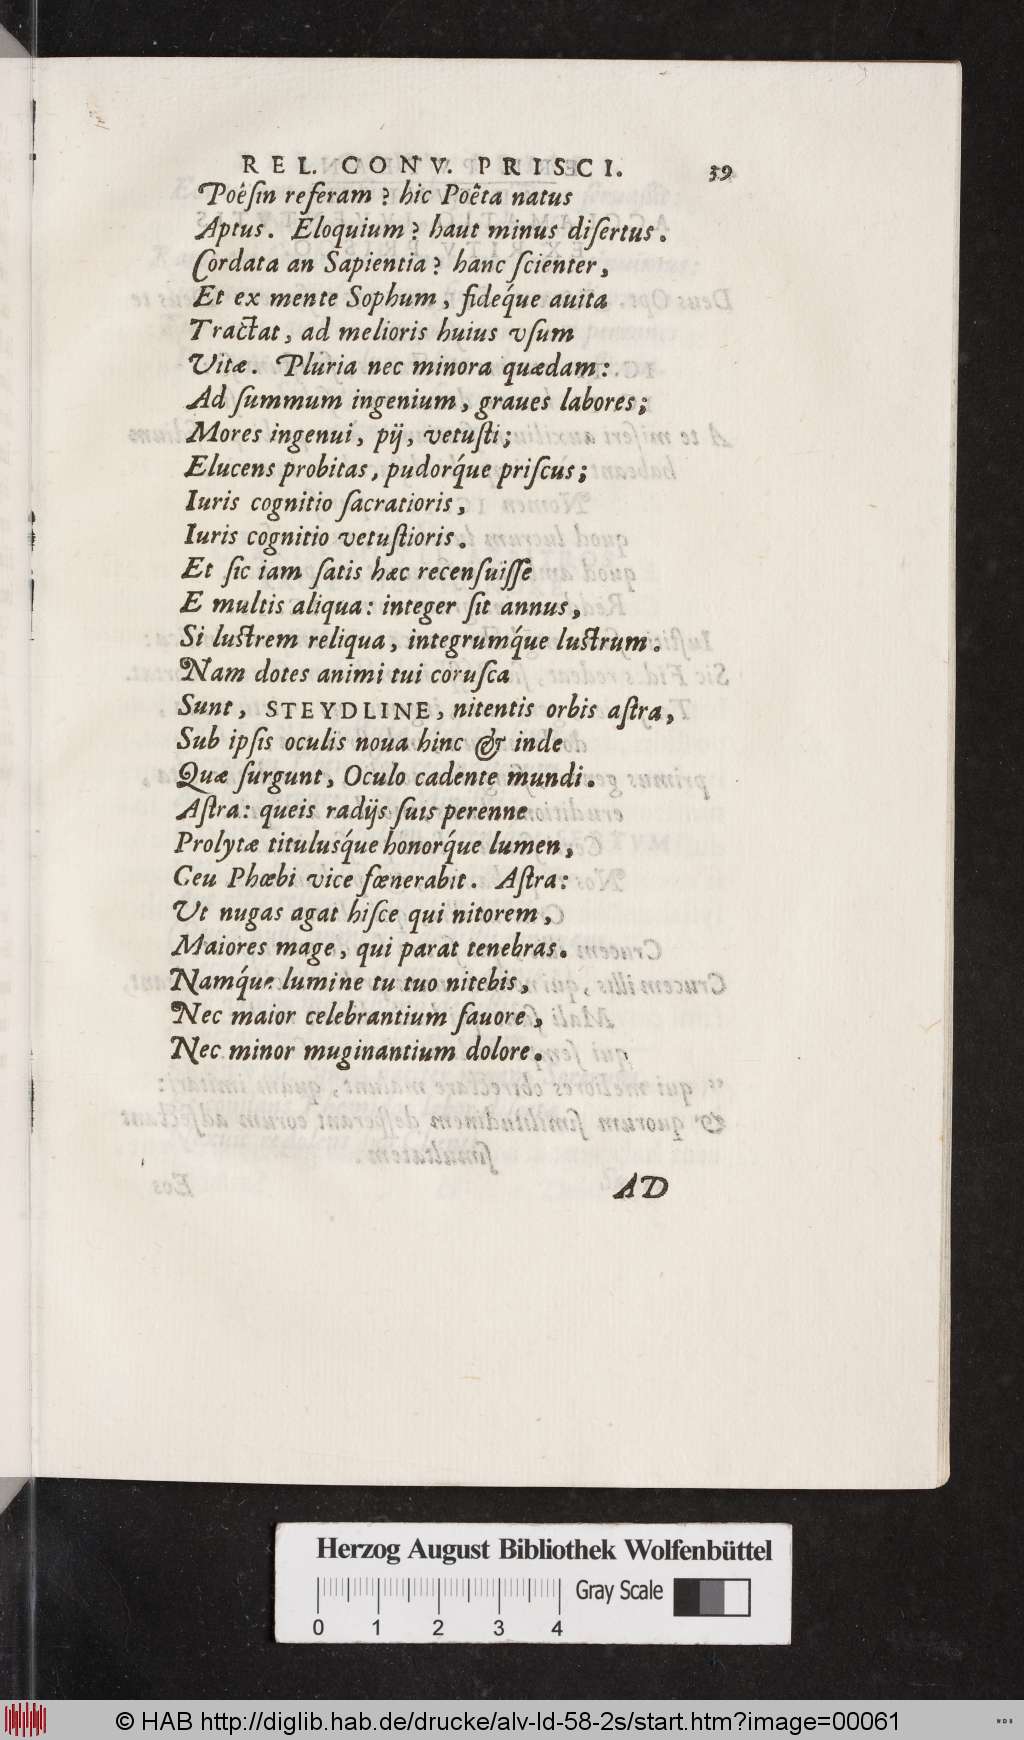 REL. CONV. PRISCI. 39
Poêſin referam? hic Poêta natus
Aptus. Eloquium? haut minus diſertus.
Cordata an Sapientia? hanc ſcienter,
Et ex mente Sophum, fideq́ue auita
Tractat, ad melioris huius vſum
Vitæ. Pluria nec minora quædam:
Ad ſummum ingenium, graues labores;
Mores ingenui, pij, vetuſti;
Elucens probitas, pudorq́ue priſcus;
Iuris cognitio ſacratioris,
Iuris cognitio vetuſtioris.
Et ſic iam ſatis hæc recenſuiſſe
E multis aliqua: integer ſit annus,
Si luſtrem reliqua, integrumq́ue luſtrum.
Nam dotes animi tui coruſca
Sunt, STEYDLINE, nitentis orbis aſtra,
Sub ipſis oculis noua hinc & inde
Quæ ſurgunt, Oculo cadente mundi.
Aſtra: queis radijs ſuis perenne
Prolytæ titulusq́ue honorq́ue lumen,
Ceu Phœbi vice fœnerabit. Aſtra:
Vt nugas agat hiſce qui nitorem,
Maiores mage, qui parat tenebras.
Namq́ue lumine tu tuo nitebis,
Nec maior celebrantium fauore,
Nec minor muginantium dolore.
AD
Herzog August Bibliothek Wolfenbüttel
Gray Scale
0 1 2 3 4
© HAB http://diglib.hab.de/drucke/alv-ld-58-2s/start.htm?image=00061